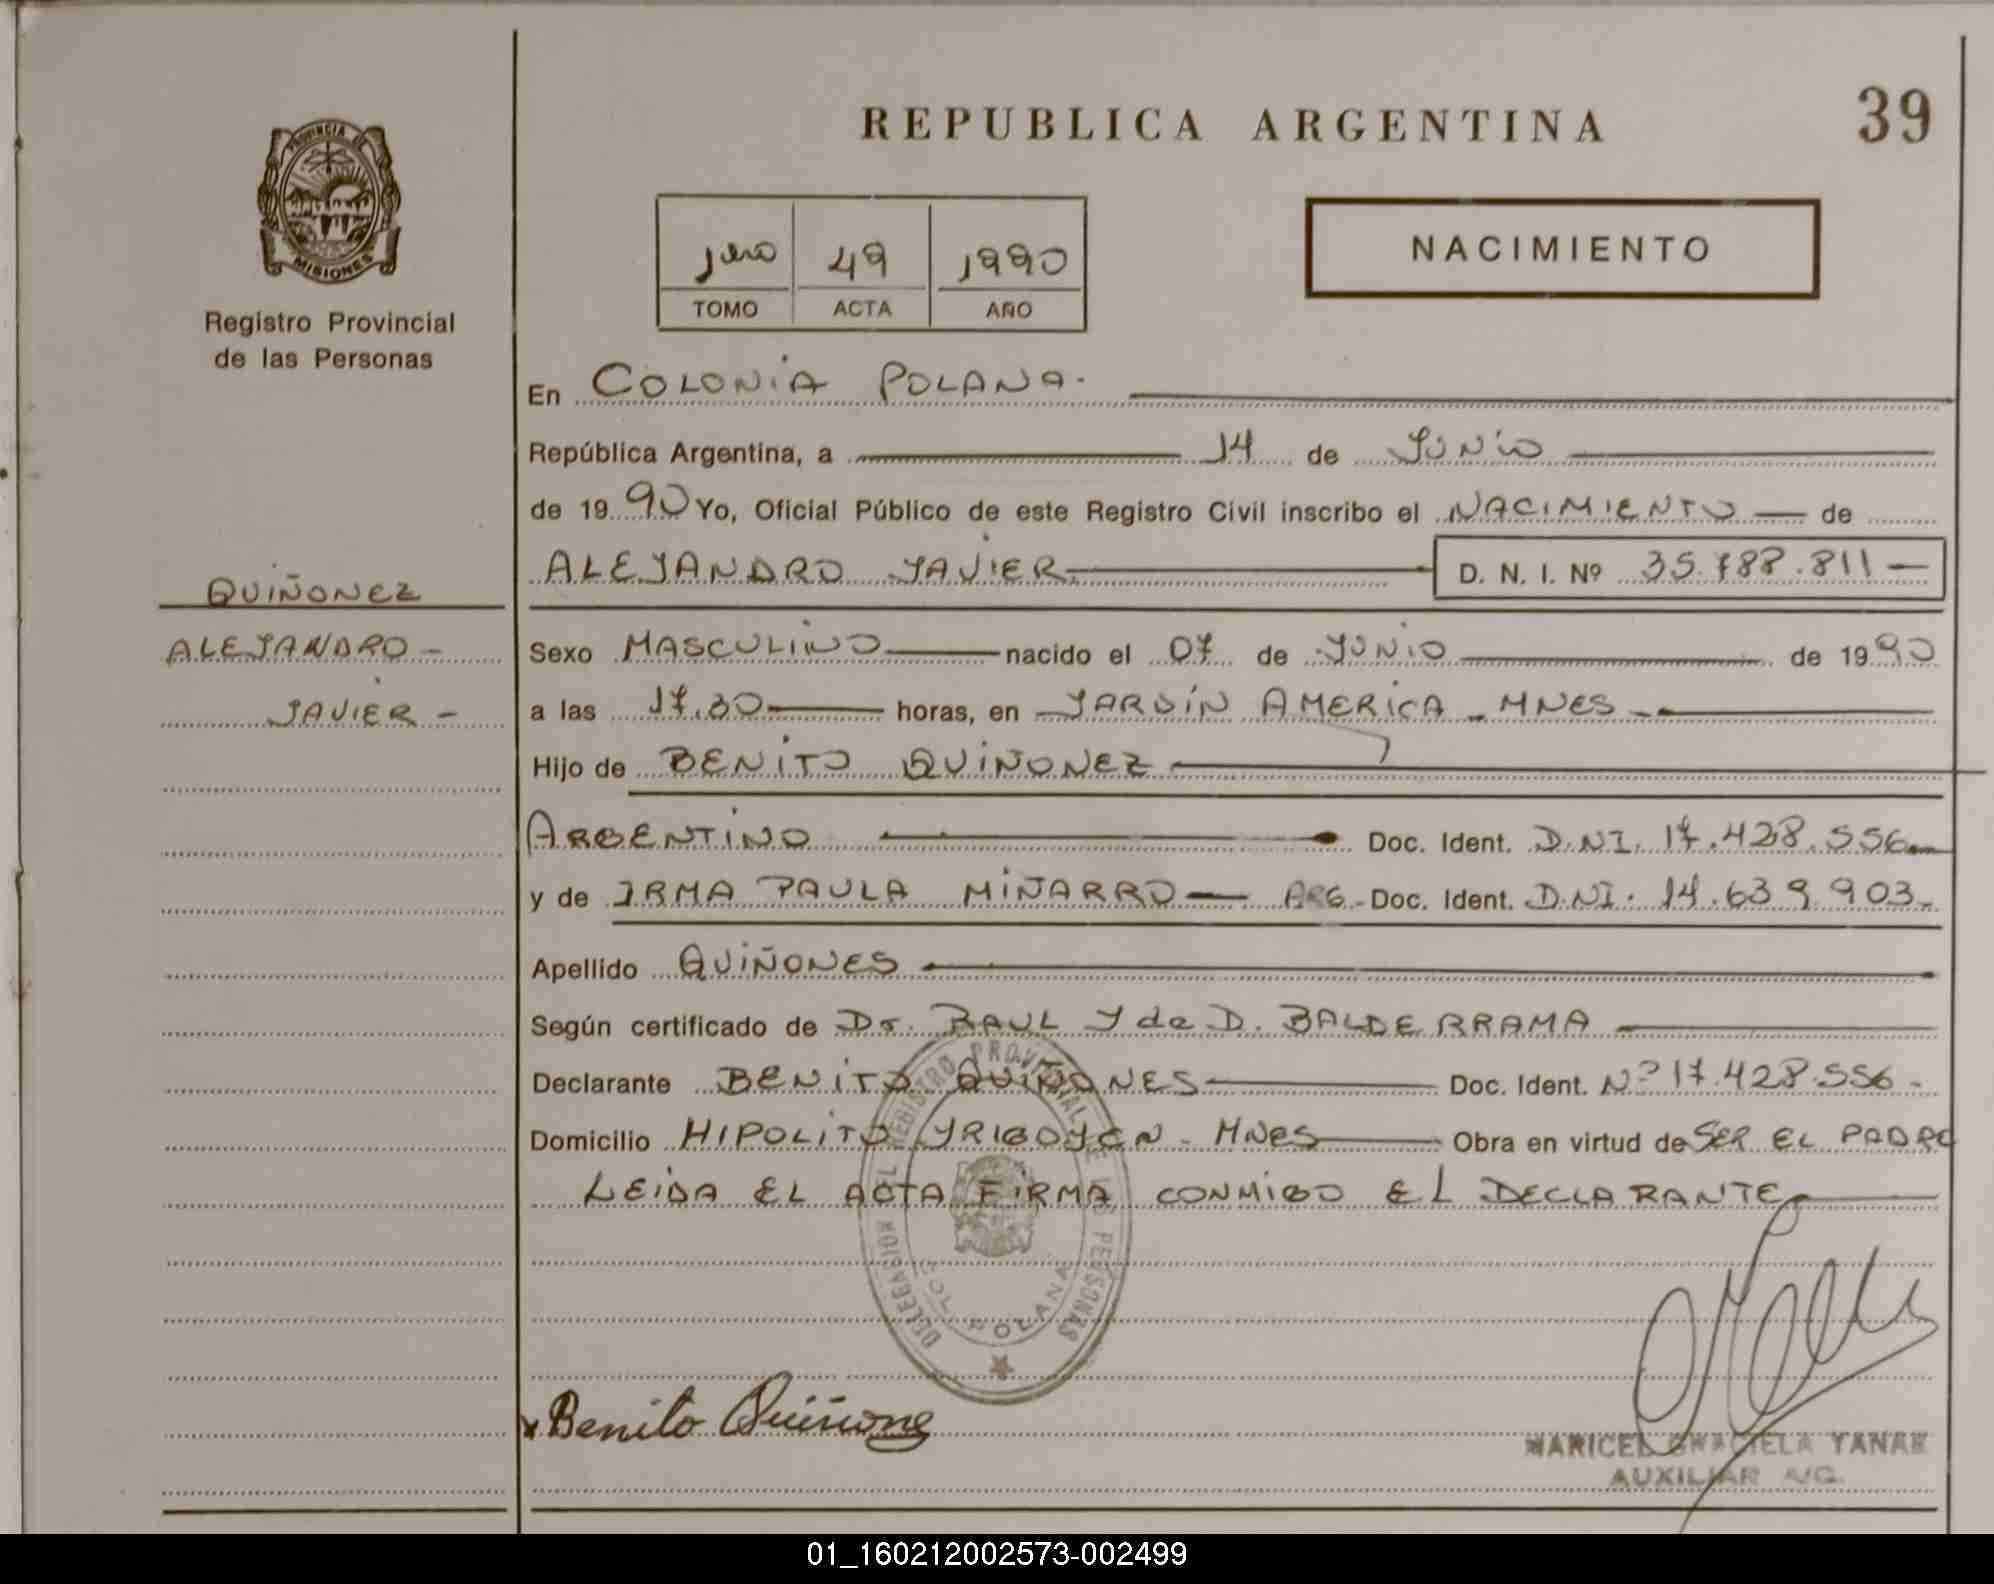 REPUBLICA ARGENTINA
39
PROVINCIA DE
MISIONES
Registro Provincial
de las Personas
1ero 49 1990
TOMO ACTA AÑO
NACIMIENTO
En COLONIA POLANA.
República Argentina, a 14 de JUNIO
de 1990 Yo, Oficial Público de este Registro Civil inscribo el NACIMIENTO de
ALEJANDRO JAVIER. D. N. I. Nº 35.788.811
QUIÑONEZ
ALEJANDRO -
JAVIER -
Sexo MASCULINO nacido el 07 de JUNIO de 1990
a las 17.30 horas, en JARDÍN AMERICA - MNES -
Hijo de BENITO QUIÑONEZ
ARGENTINO Doc. Ident. D.NI. 17.428.556
y de IRMA PAULA MIÑARRO ARG - Doc. Ident. D.NI. 14.639.903 -
Apellido QUIÑONES
Según certificado de Dr. RAUL Y de D. BALDERRAMA
Declarante BENITO QUIÑONES Doc. Ident. Nº 17.428.556 -
Domicilio HIPOLITO YRIGOYEN - MNES Obra en virtud de SER EL PADRE
LEIDA EL ACTA FIRMA CONMIGO EL DECLARANTE
DELEGACION DEL REGISTRO PROVINCIAL DE LAS PERSONAS
COL. POLANA
x Benito Quiñone
MARICEL GRACIELA
AUXILIAR A/C.
01_160212002573-002499